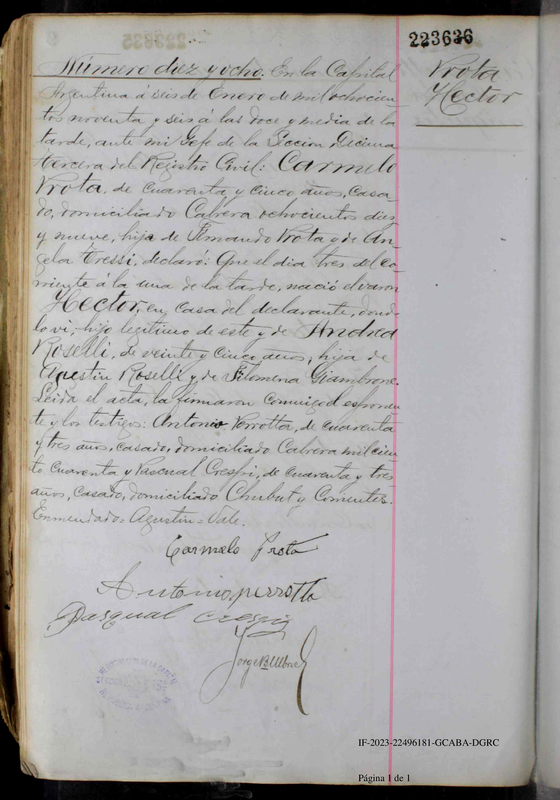 223636
Prota
Hector
Número diez y ocho. En la Capital
Argentina á seis de Enero de mil ochocien-
tos noventa y seis a las doce y media de la
tarde, ante mi Gefe de la Seccion Decima
tercera del Registro Civil: Carmelo
Prota, de cuarenta y cinco años, casa-
do, domiciliado Cabrera ochocientos diez
y nueve, hijo de Fernando Prota y de An-
gela Tressi, declaró: Que el dia tres del co-
rriente á la una de la tarde, nació el varon
Hector, en casa del declarante, donde
lo vi, hijo legitimo de este y de Andrea
Roselli, de veinte y cinco años, hija de
Agustin Roselli y de Filomena Giambrone.
Leida el acta, la firmaron conmigo el esponen-
te y los testigos: Antonio Perrotta, de cuarenta
y tres años, casado, domiciliado Cabrera mil cien-
to cuarenta y Pascual Crespi, de cuarenta y tres
años, casado, domiciliado Chubut y Corrientes.
Enmendado = Agustin = Vale.
Carmelo Prota
Antonio perrotta
Pasqual crespi
IF-2023-22496181-GCABA-DGRC
Página 1 de 1